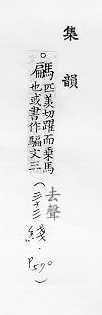 集韻
。騗匹羨切躍而乗馬
也或書作騙文三
(去聲三十三 線.P570)